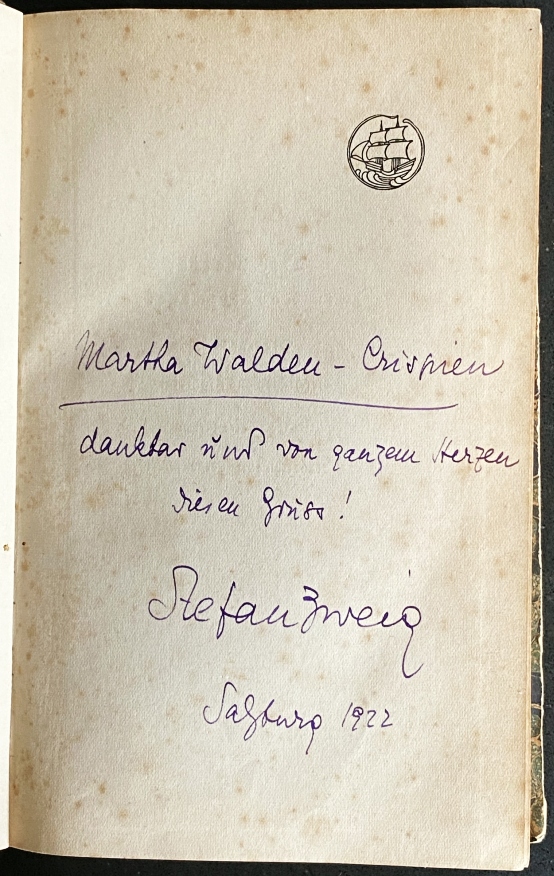 Martha Walden - Crispien
dankbar und von ganzem Herzen
diesen Gruss!
Stefan Zweig
Salzburg 1922